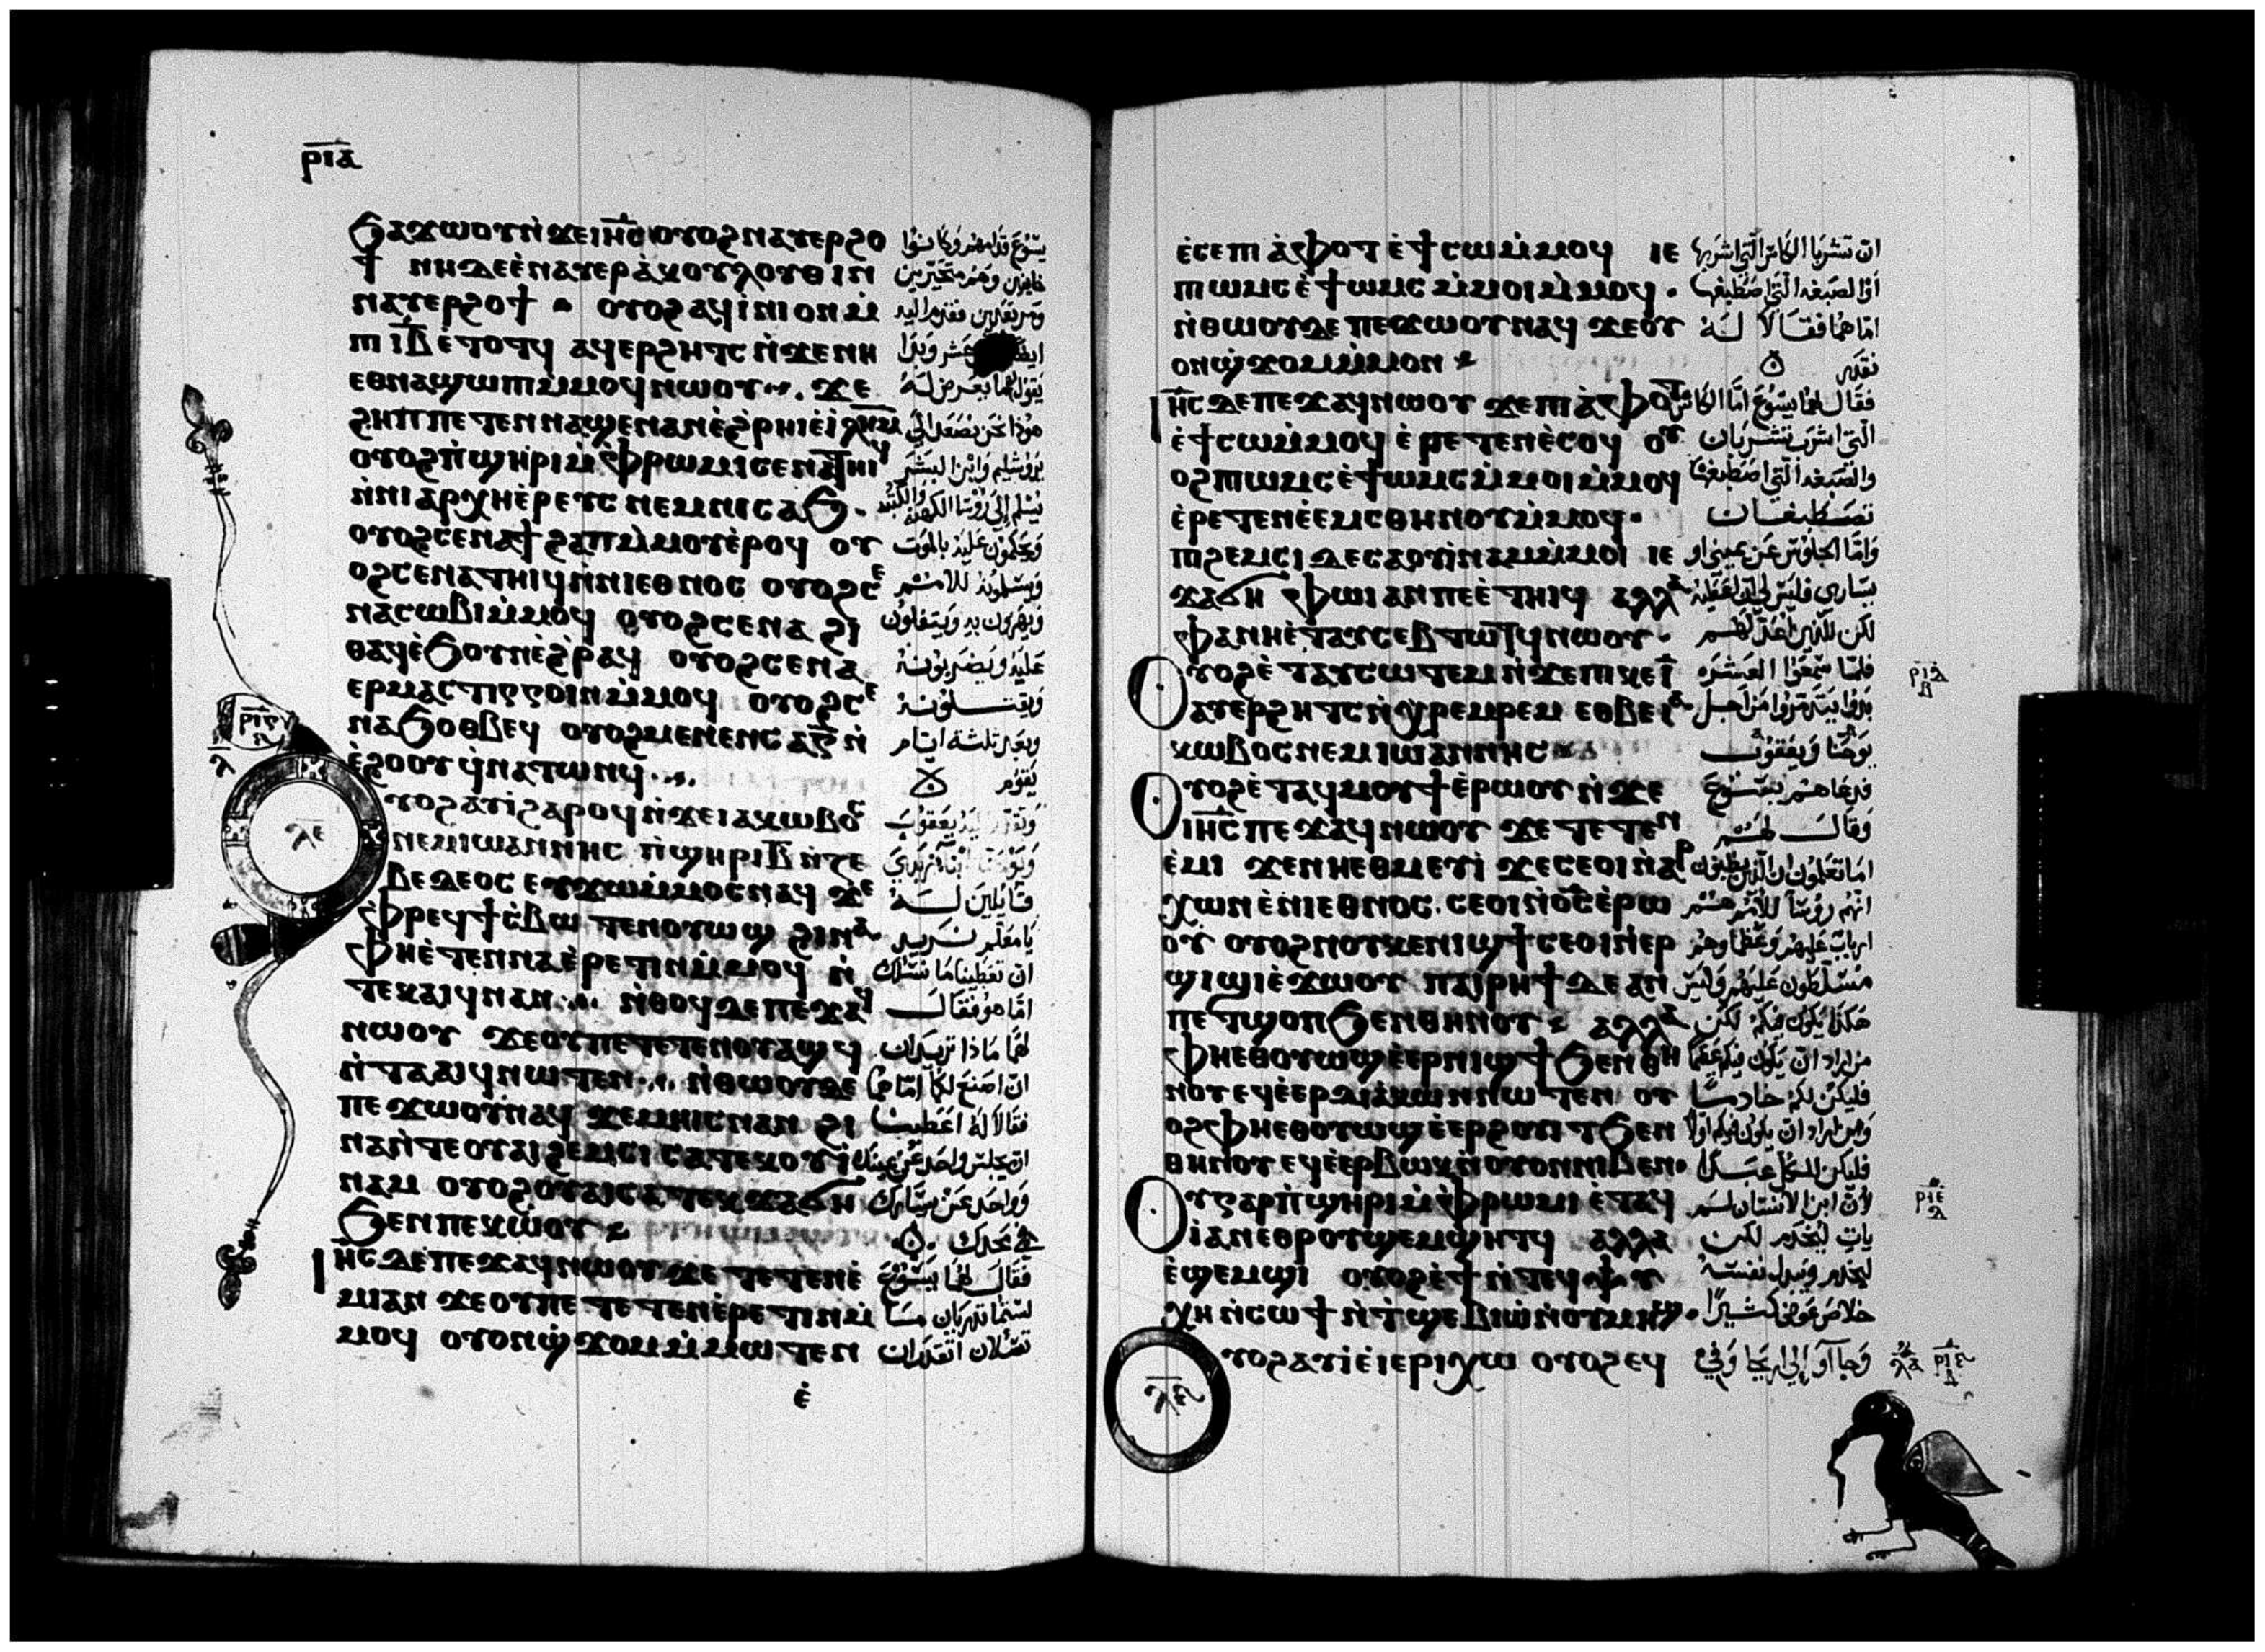 ⲣⲓⲁ
ϧⲁϫⲱⲟⲩⲛ̀ϫⲉⲓⲏ̅ⲥ̅ ⲟⲩⲟϩⲛⲁⲩⲉⲣϩⲟ
ϯ ⲛⲏⲇⲉⲉ̀ⲛⲁⲩⲉⲣⲁ̀ⲕⲟⲩⲗⲟⲩⲑⲓⲛ
ⲛⲁⲩⲉⲣϩⲟϯ ⲟⲩⲟϩⲁϥⲓ̀ⲛⲓⲟⲛⲙ̀
ⲡⲓⲓ̅ⲃ̅ ⲉ̀ⲧⲟⲧϥ ⲁϥⲉⲣϩⲏⲧⲥ ⲛ̀ϫⲉⲛⲏ
ⲉⲑⲛⲁϣⲱⲡⲓⲙ̀ⲙⲟϥⲛⲱⲟⲩ ϫⲉ
ϩⲏⲡⲡⲉⲧⲉⲛⲛⲁϣⲉⲛⲁⲛⲉ̀ϩⲣⲏⲓⲉ̀ⲓ̅ⲗ̅ⲏ̅ⲙ̅
ⲟⲩⲟϩⲡ̀ϣⲏⲣⲓⲙ̀ⲫ̀ⲣⲱⲙⲓⲥⲉⲛⲁⲧⲏⲓϥ
ⲛ̀ⲛⲓⲁⲣⲭⲏⲉ̀ⲣⲉⲩⲥ ⲛⲉⲙⲛⲓⲥⲁϧ ·
ⲟⲩⲟϩⲥⲉⲛⲁϯϩⲁⲡⲙ̀ⲙⲟⲩⲉ̀ⲣⲟϥ ⲟⲩ
ⲟϩⲥⲉⲛⲁⲧⲏⲓϥⲛ̀ⲛⲓⲉⲑⲛⲟⲥ ⲟⲩⲟϩⲥⲉ
ⲛⲁⲥⲱⲃⲓⲙ̀ⲙⲟϥ ⲟⲩⲟϩⲥⲉⲛⲁ ϩⲓ
ⲑⲁϥⲉ̀ϧⲟⲩⲛⲉ̀ϩⲣⲁϥ ⲟⲩⲟϩⲥⲉⲛⲁ
ⲉⲣⲙⲁⲥⲧⲓⲅⲅⲟⲓⲛⲙ̀ⲙⲟϥ ⲟⲩⲟϩⲥⲉ
ⲛⲁϧⲟⲑⲃⲉϥ ⲟⲩⲟϩⲙⲉⲛⲉⲛⲥⲁⲅ̅ ⲛ̀
ⲉ̀ϩⲟⲟⲩ ϥ̀ⲛⲁⲧⲱⲛϥ
ⲩⲟϩⲁⲩⲓ̀ϩⲁⲣⲟϥⲛ̀ϫⲉⲓⲁⲕⲱⲃⲟⲥ
ⲛⲉⲙⲓⲱⲁⲛⲛⲏⲥ ⲛ̀ϣⲏⲣⲓⲃ̅ ⲛ̀ⲍⲉ
ⲃⲉⲇⲉⲟⲥ ⲉⲩϫⲱⲙ̀ⲙⲟⲥⲛⲁϥ ϫⲉ
ⲫ̀ⲣⲉϥϯⲥ̀ⲃⲱ ⲧⲉⲛⲟⲩⲱϣ ϩⲓⲛⲁ
ⲫⲏⲉ̀ⲧⲉⲛⲛⲁⲉ̀ⲣⲉⲧⲓⲛⲙ̀ⲙⲟϥ ⲛ̀
ⲧⲉⲕⲁⲓϥⲛⲁⲛ ⲛ̀ⲑⲟϥⲇⲉⲡⲉϫⲁϥ
ⲛⲱⲟⲩ ϫⲉⲟⲩⲡⲉⲧⲉⲧⲉⲛⲟⲩⲁϣϥ
ⲛ̀ⲧⲁⲁⲓϥⲛⲱⲧⲉⲛ ⲛ̀ⲑⲱⲟⲩⲇⲉ
ⲡⲉϫⲱⲟⲩⲛⲁϥ ϫⲉⲙⲏⲓⲥⲛⲁⲛ ϩⲓ
ⲛⲁⲛ̀ⲧⲉⲟⲩⲁⲓϩⲉⲙⲥⲓ ⲥⲁⲧⲉⲕⲟⲩⲓ̀
ⲛⲁⲙ ⲟⲩⲟϩⲟⲩⲁⲓⲥⲁⲧⲉⲕϫⲁϭⲏ
ϧⲉⲛⲡⲉⲕⲱ̀ⲟⲩ
ⲓⲏ̅ⲥ̅ ⲇⲉⲡⲉϫⲁϥⲛⲱⲟⲩϫⲉ ⲧⲉⲧⲉⲛⲉ̀
ⲙⲓⲁⲛ ϫⲉⲟⲩⲡⲉ ⲧⲉⲧⲉⲛⲉ̀ⲣⲉⲧⲓⲛⲙ̀
ⲙⲟϥ ⲟⲩⲟⲛϣ̀ϫⲟⲙⲙ̀ⲙⲱⲧⲉⲛ
ⲉ̀
يسوع قدامهم وكانوا
خايفين وهم متحيرين
يقول لهما يعرض له
هوذا نحن نصعد الى
يروشليم وابن البشر
يسلم الى روسا الكهنة والكتبة
ويحكمون عليه بالموت
ويسلمونه للامم
ويهزون به ويتفلون
عليه ويضربونه
ويقتلونه
وبعد ثلثة ايام
يقوم
قايلين له
يا معلم نريد
ان تعطينا ما نسلك
اما هو فقال
لهما ماذا تريدان
ان اصنع لكما اما هما
فقالا له اعطينا
ان يجلس واحد عن يمينك
وواحد عن يسارك
في مجدك
فقال لهما يسوع
لستما تدريان ما
تسلان اتقدران
ⲣⲓⲅ
ⲗⲉ
ⲉ̀ⲥⲉⲡⲓⲁ̀ⲫⲟⲧ ⲉ̀ϯⲥⲱⲙ̀ⲙⲟϥ ⲓⲉ
ⲡⲓⲱⲙⲥ ⲉ̀ϯⲱⲙⲥ ⲙ̀ⲙⲟⲓⲙ̀ⲙⲟϥ ·
ⲛ̀ⲑⲱⲟⲩⲇⲉ ⲡⲉϫⲱⲟⲩⲛⲁϥ ϫⲉⲟⲩ
ⲟⲛϣ̀ϫⲟⲙⲙ̀ⲙⲟⲛ
ⲓⲏ̅ⲥ̅ ⲇⲉⲡⲉϫⲁϥⲛⲱⲟⲩ ϫⲉⲡⲓⲁ̀ⲫⲟⲧ
ⲉ̀ϯⲥⲱⲙ̀ⲙⲟϥ ⲉ̀ⲣⲉⲧⲉⲛⲉ̀ⲥⲟϥ ⲟⲩ
ⲟϩⲡⲓⲱⲙⲥ ⲉ̀ϯⲱⲙⲥ ⲙ̀ⲙⲟⲓⲙ̀ⲙⲟϥ
ⲉ̀ⲣⲉⲧⲉⲛⲉ̀ⲉⲙⲥⲑⲏⲛⲟⲩⲙ̀ⲙⲟϥ ·
ⲡϩⲉⲙⲥⲓ ⲇⲉⲥⲁⲟⲩⲓ̀ⲛⲁⲙⲙ̀ⲙⲟⲓ ⲓⲉ
ϫⲁϭⲏ ⲫⲱⲓ ⲁⲛⲡⲉⲉ̀ⲧⲏⲓϥ ⲁⲗⲗⲁ
ⲫⲁⲛⲏⲉ̀ⲧⲁⲩⲥⲉⲃⲧⲱⲧϥⲛⲱⲟⲩ ·
ⲟⲩⲟϩⲉ̀ⲧⲁⲩⲥⲱⲧⲉⲙ ⲛ̀ϫⲉⲡⲓⲕⲉⲓ̅
ⲁⲩⲉⲣϩⲏⲧⲥ ⲛ̀ⲭⲣⲉⲙⲣⲉⲙ ⲉⲑⲃⲉⲓⲁ
ⲕⲱⲃⲟⲥ ⲛⲉⲙⲓⲱⲁⲛⲛⲏⲥ
ⲟⲩⲟϩⲉ̀ⲧⲁϥⲙⲟⲩϯⲉ̀ⲣⲱⲟⲩ ⲛ̀ϫⲉ
ⲓⲏ̅ⲥ̅ ⲡⲉϫⲁϥⲛⲱⲟⲩ ϫⲉ ⲧⲉⲧⲉⲛ
ⲉ̀ⲙⲓ ϫⲉⲛⲏⲉⲑⲙⲉⲩⲓ̀ ϫⲉⲥⲉⲟⲓⲛ̀ⲁⲣ
ⲭⲱⲛ ⲉ̀ⲛⲓⲉⲑⲛⲟⲥ · ⲥⲉⲟⲓⲛ̀ⲟ̅ⲥ̅ ⲉ̀ⲣⲱ
ⲟⲩ ⲟⲩⲟϩⲛⲟⲩⲕⲉⲛⲓϣϯⲥⲉⲟⲓⲛ̀ⲉⲣ
ϣⲓϣⲓⲉ̀ϫⲱⲟⲩ ⲡⲁⲓⲣⲏϯ ⲇⲉ ⲁⲛ
ⲡⲉⲧϣⲟⲡ ϧⲉⲛⲑⲏⲛⲟⲩ ⲁⲗⲗⲁ
ⲫⲏⲉⲑⲟⲩⲱϣⲉ̀ⲉⲣⲛⲓϣϯ ϧⲉⲛⲑⲏ
ⲛⲟⲩ ⲉϥⲉ̀ⲉⲣⲇⲓⲁⲕⲱⲛⲛⲱⲧⲉⲛ ⲟⲩ
ⲟϩⲫⲏⲉⲑⲟⲩⲱϣⲉ̀ⲉⲣϩⲟⲩⲓⲧ ϧⲉⲛ
ⲑⲏⲛⲟⲩ ⲉϥⲉ̀ⲉⲣⲃⲱⲕⲛ̀ⲟⲩⲟⲛⲛⲓⲃⲉⲛ ·
ⲟⲩⲅⲁⲣⲡ̀ϣⲏⲣⲓⲙ̀ⲫ̀ⲣⲱⲙⲓ ⲉ̀ⲧⲁϥ
ⲓⲁⲛⲉⲑⲣⲟⲩϣⲉⲙϣⲏⲧϥ ⲁⲗⲗⲁ
ⲉ̀ϣⲉⲙϣⲓ ⲟⲩⲟϩⲉ̀ϯ ⲛ̀ⲧⲉϥⲯⲩ
ⲭⲏ ⲛ̀ⲥⲱϯ ⲛ̀ⲧϣⲉⲃⲓⲱ̀ⲛ̀ⲟⲩⲙⲏϣ ·
ⲟⲩⲟϩⲁⲩⲓ̀ⲉ̀ⲓⲉⲣⲓⲭⲱ ⲟⲩⲟϩⲉϥ
ان تشربا الكاس التي اشربها
او الصبغة التي اصطبغها
اما هما فقالا له
نقدر
فقال لهما يسوع اما الكاس
التي اشرب تشربان
والصبغة التي اصطبغها
تصطبغان
واما الجلوس عن يميني او
يساري فليس لي ان اعطيه
لكن للذين اعد لهم
فلما سمعوا العشرة
بدوا يتذمروا من اجل
يوحنا ويعقوب
فدعاهم يسوع
وقال لهم
اما تعلمون ان الذين يظنون
انهم روسا للامم هم
ارباب عليهم وعظماوهم
مسلطون عليهم وليس
هكذا يكون فيكم لكن
من اراد ان يكون فيكم عظيما
فليكن لكم خادما
ومن اراد ان يكون فيكم اولا
فليكن للكل عبدا
لان ابن الانسان لم
يات ليخدم لكن
ليخدم ويبذل نفسه
خلاص عوض كثيرا
وجاوا الى اريحا وفي
ⲣⲓⲇ
ⲃ
ⲣⲓⲉ
ⲇ
ⲗⲋ